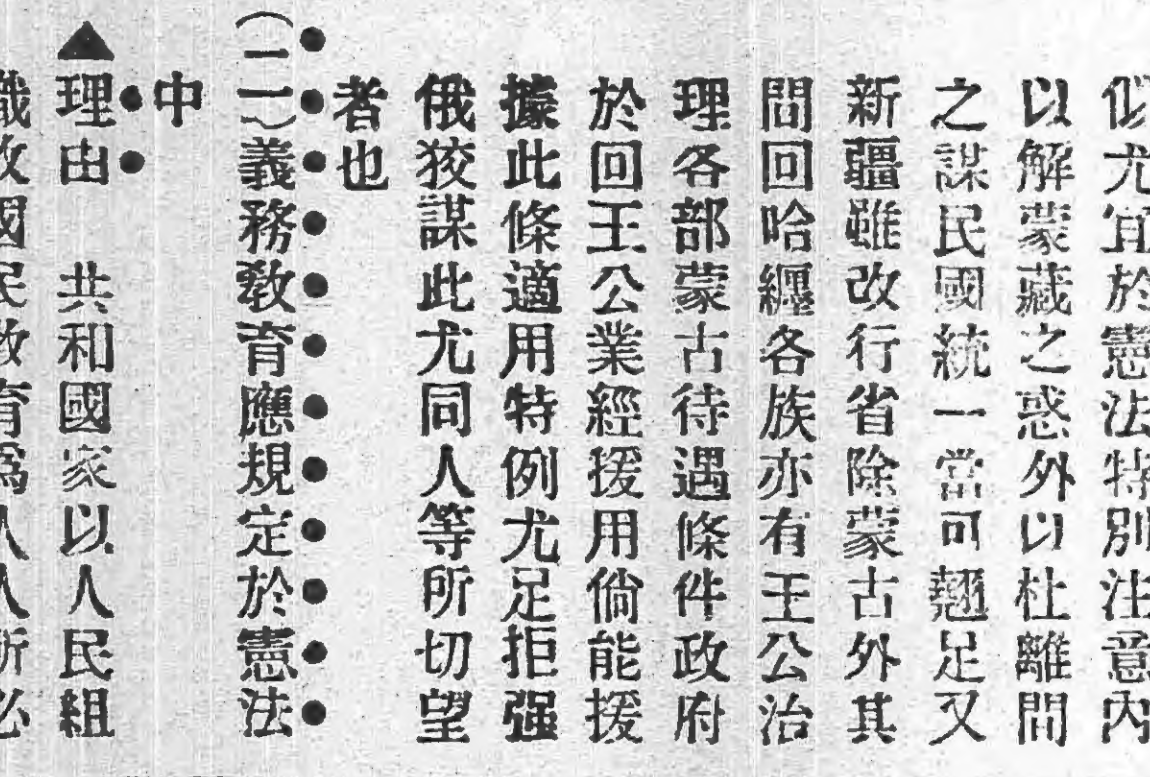 似尤宜於憲法特別注意內
以解蒙藏之惑外以杜離間
之謀民國統一當可翹足又
新疆雖改行省除蒙古外其
間回哈纏各族亦有王公治
理各部蒙古待遇條件政府
於回王公業經援用倘能援
據此條適用特例尤足拒强
俄狡謀此尤同人等所切望
者也
(二)義務敎育應規定於憲法
中
▲理由　共和國家以人民組
織故國民敎育爲人人所必